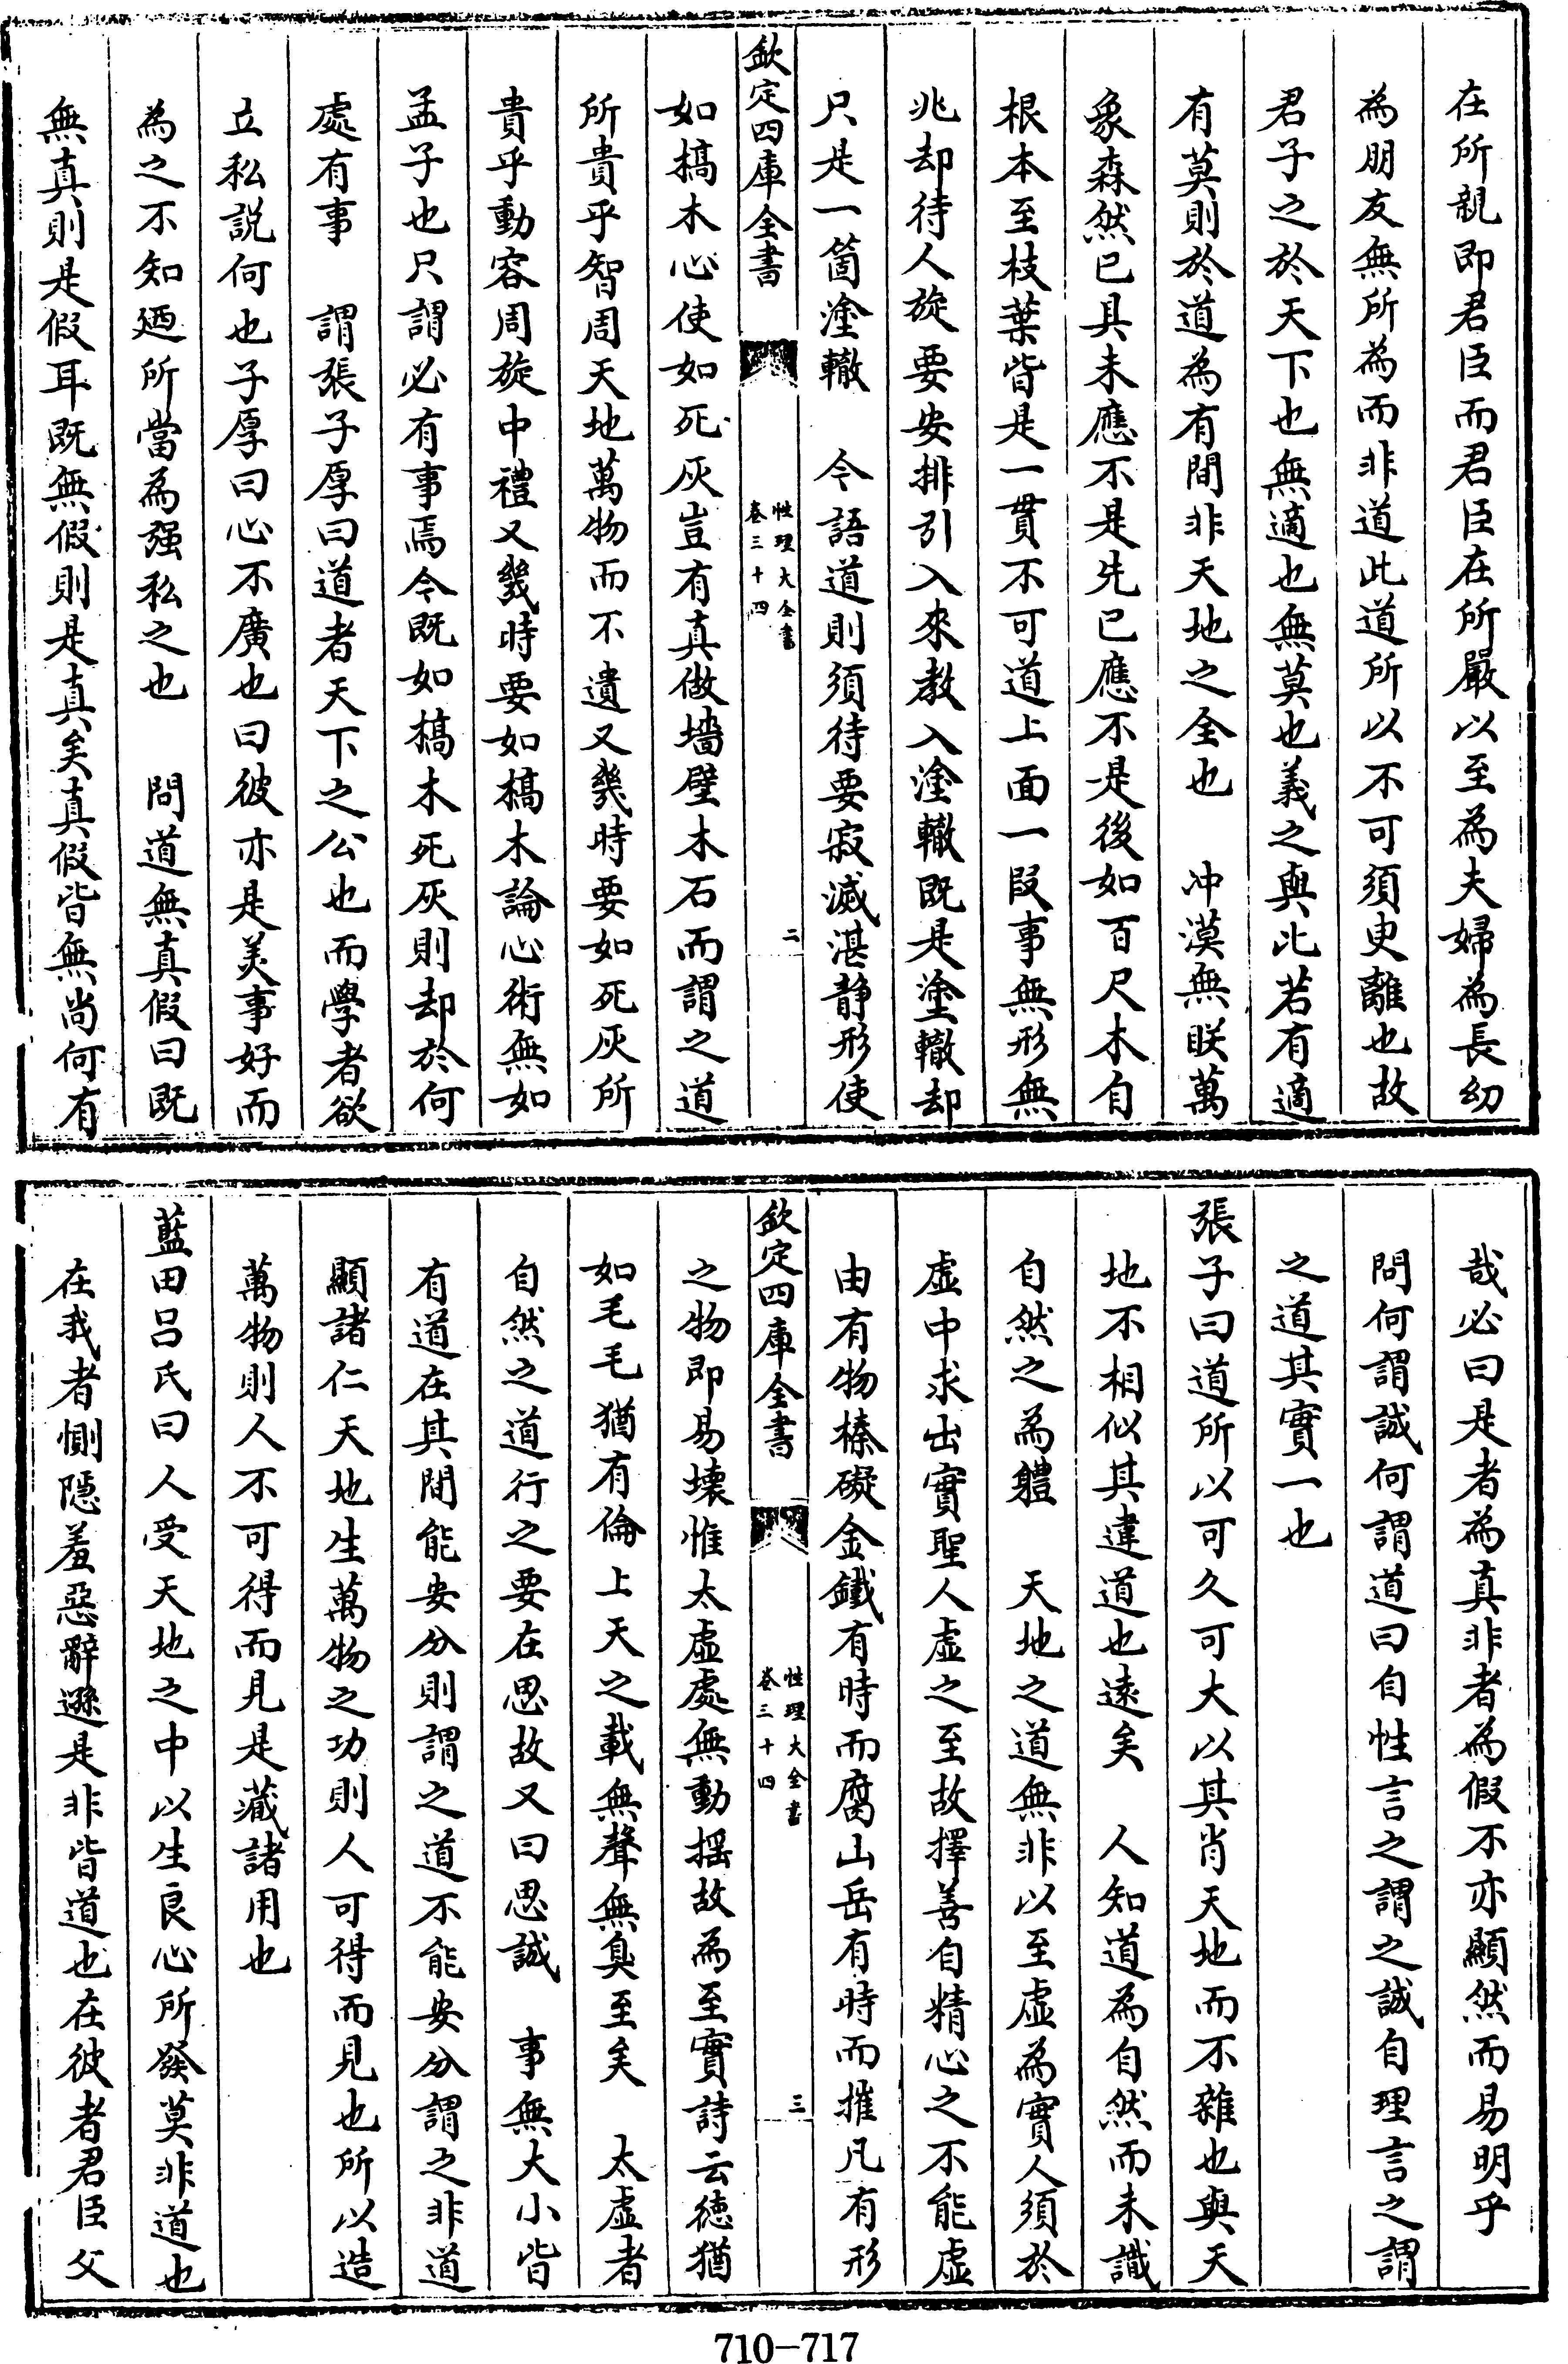 在所親即君臣而君臣在所嚴以至為夫婦為長幼
為朋友無所為而非道此道所以不可須臾離也故
君子之於天下也無適也無莫也義之與比若有適
有莫則於道為有間非天地之全也　冲漠無眹萬
象森然已具未應不是先已應不是後如百尺木自
根本至枝葉皆是一貫不可道上面一段事無形無
兆却待人旋要安排引入來教入塗轍既是塗轍却
只是一箇塗轍　今語道則須待要寂滅湛静形使
欽定四庫全書
性理大全書
卷三十四
二
如槁木心使如死灰豈有真做墻壁木石而謂之道
所貴乎智周天地萬物而不遺又幾時要如死灰所
貴乎動容周旋中禮又幾時要如槁木論心術無如
孟子也只謂必有事焉今既如槁木死灰則却於何
處有事　謂張子厚曰道者天下之公也而學者欲
立私説何也子厚曰心不廣也曰彼亦是美事好而
為之不知廼所當為强私之也　問道無真假曰既
無真則是假耳既無假則是真矣真假皆無尚何有
哉必曰是者為真非者為假不亦顯然而易明乎
問何謂誠何謂道曰自性言之謂之誠自理言之謂
之道其實一也
張子曰道所以可久可大以其肖天地而不雜也與天
地不相似其違道也遠矣　人知道為自然而未識
自然之為體　天地之道無非以至虚為實人須於
虚中求出實聖人虚之至故擇善自精心之不能虚
由有物榛礙金鐵有時而腐山岳有時而摧凡有形
欽定四庫全書
性理大全書
卷三十四
三
之物即易壞惟太虚處無動揺故為至實詩云徳猶
如毛毛猶有倫上天之載無聲無臭至矣　太虚者
自然之道行之要在思故又曰思誠　事無大小皆
有道在其間能安分則謂之道不能安分謂之非道
顯諸仁天地生萬物之功則人可得而見也所以造
萬物則人不可得而見是藏諸用也
藍田呂氏曰人受天地之中以生良心所發莫非道也
在我者惻隠羞惡辭遜是非皆道也在彼者君臣父
710-717